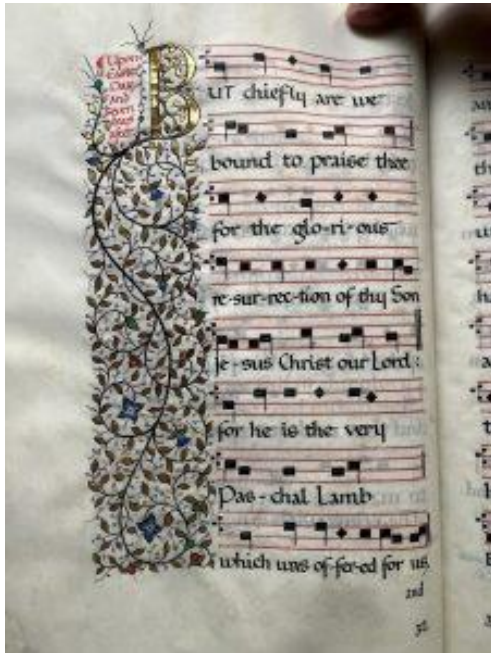 Upon
Easter
Day
and
seven
days
after
BUT chiefly are we
bound to praise thee
for the glo-ri-ous
re-sur-rec-tion of thy Son
Je-sus Christ our Lord:
for he is the very
Pas-chal Lamb
which was of-fer-ed for us
and